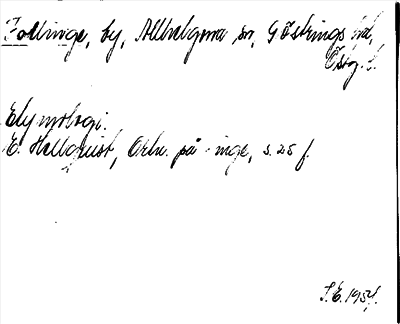 Follinge, by, Allhelgona sn, Göstrings hd,
Östg. l.
Etymologi.
E. Hellquist, Ortn. på -inge, s. 25 f.
S. E. 1954.